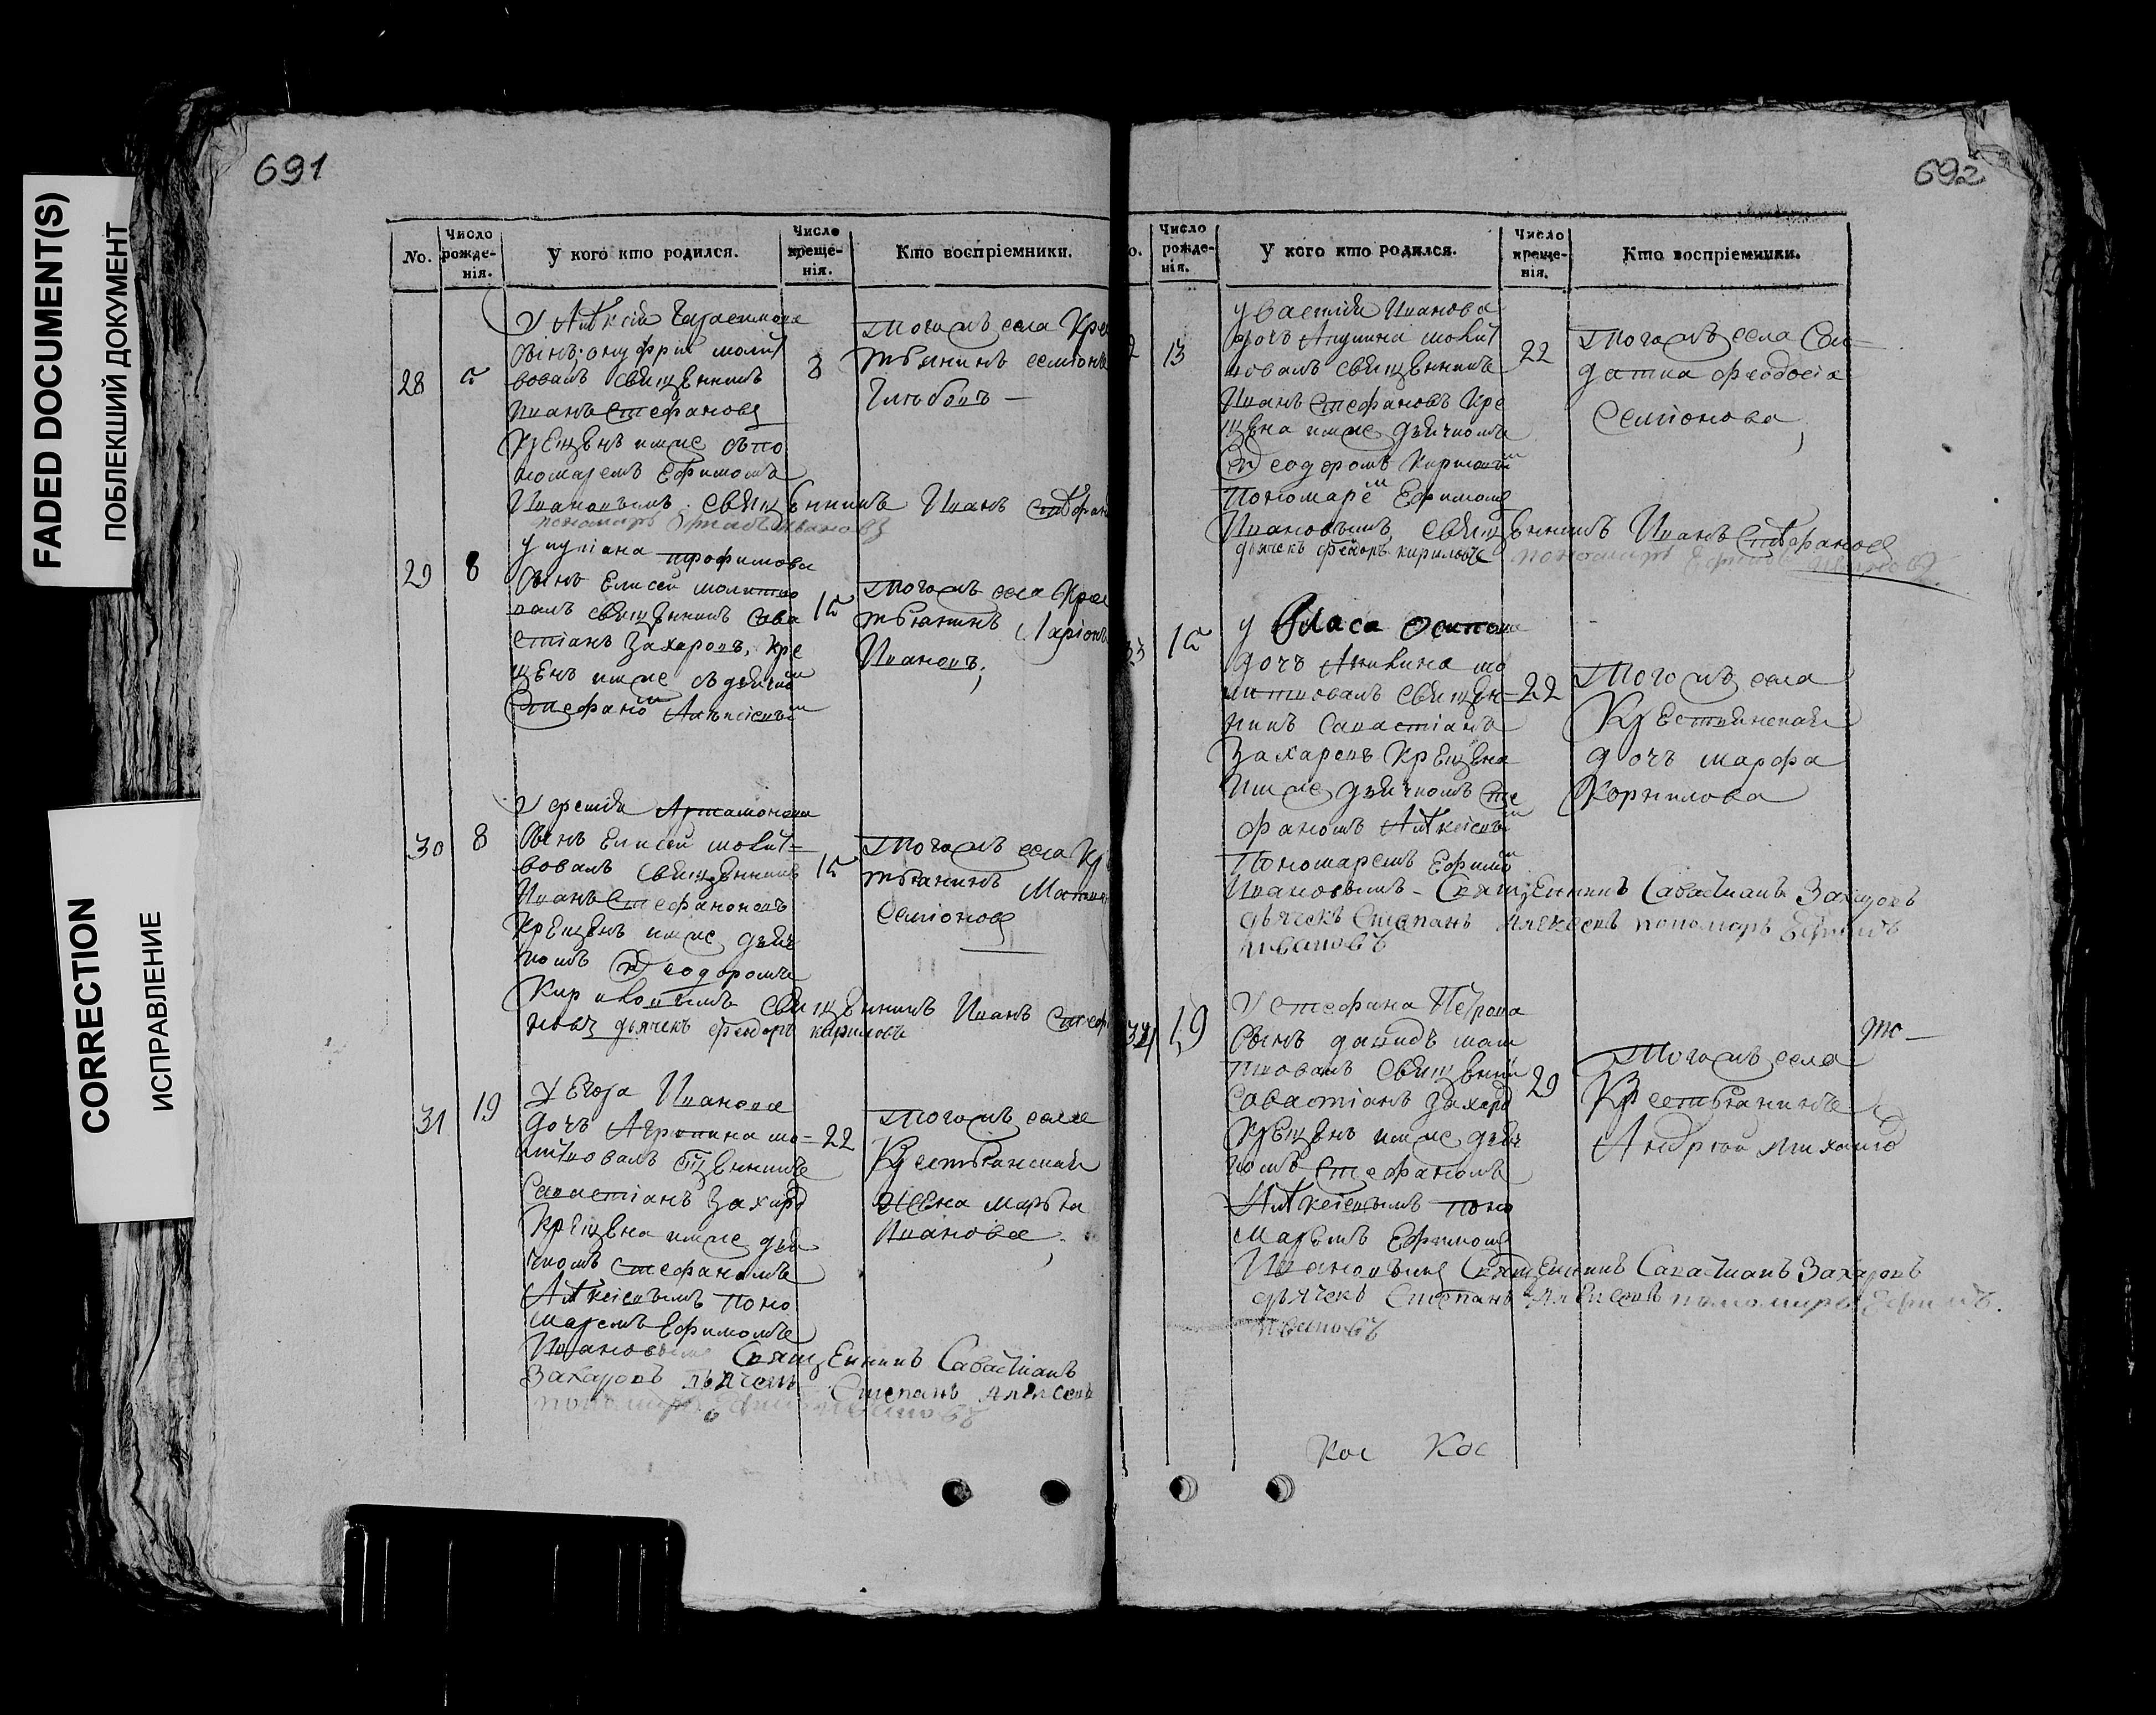 FADED DOCUMENT(S)
ПОБЛЕКШИЙ ДОКУМЕНТ
CORRECTION
ИСПРАВЛЕНИЕ
691
No.
Число рожде-нія.
У кого кто родился.
Число креще-нія.
Кто воспріемники.
28
8
У Алексія
сынъ онуфрій молит
вовалъ священникъ
Иванъ Стефановъ
Крещенъ имже съ по
номаремъ Ефимомъ
Ивановымъ священникъ Иванъ Стефан
пономарь Ивановъ
Тогожъ села Кре
стьянинъ семіонъ
Глебовъ
29
8
трофимова
сынъ Елисей молитво
валъ священникъ Сава
стіанъ Захаровъ, кре
щенъ имже съ дьячком
Стефаном Алексіевым
Тогожъ села Крес
тьянинъ Ларіонъ
Ивановъ;
30
8
У Артамонова
сынъ Елисей молит=
вовалъ священникъ
Иванъ Стефановъ
Крещенъ имже дьяч
комъ Феодоромъ
Кириловымъ священникъ Иванъ Стеф
новъ дьячекъ феодоръ кириловъ
Тогожъ села Кр
тьянинъ
Семіоновъ
31
19
У Егора Иванова
дочь Агрипина мо=
литвовалъ священникъ
Савастіанъ Захаро
Крещена имже дья
чкомъ Стефаномъ
Алексіевымъ поно
маремъ Ефимомъ
Ивановымъ Священникъ Савастианъ
Захаровъ дьячекъ Степанъ Алексеевъ
22
Тогожъ села
Крестьянская
жена марья
Иванова
692
о.
Число рожде-нія.
У кого кто родился.
Число креще-нія.
Кто воспріемники.
13
у василія Иванова
дочь Акулина молит
вовалъ священникъ
Иванъ Стефановъ Кре
щена имже дьячкомъ
Феодоромъ
Пономаремъ Ефимомъ
Ивановымъ, священникъ Иванъ Стефановъ
дьячекъ феодоръ кириловъ пономарь Ефимъ Ивановъ
22
Тогожъ села Сол=
датка феодосіа
Семіонова
у Власа Осипова
дочь Акилина мо
литвовалъ священ=
никъ Савастіанъ
Захаровъ Крещена
имже дьячкомъ Сте
фаномъ Алексіевым
Пономаремъ Ефимом
Ивановымъ - Священникъ Савастианъ Захаровъ
дьячекъ Степанъ Алексеевъ пономарь Ефимъ
ивановъ
22
Тогожъ села
Крестьянская
дочь марфа
Корнилова
34
19
У Стефана Петрова
сынъ давидъ мол
твовалъ священникъ
Савастіанъ Захаро
Крещенъ имже дьяч
комъ Стефаномъ
Алексіевымъ поно
маремъ Ефимомъ
Ивановымъ Священникъ Савастианъ Захаровъ
дьячекъ Степанъ Алексеевъ пономарь Ефимъ
ивановъ
29
Тогожъ села
Крестьянинъ
Андрей михайло
Кос Кос